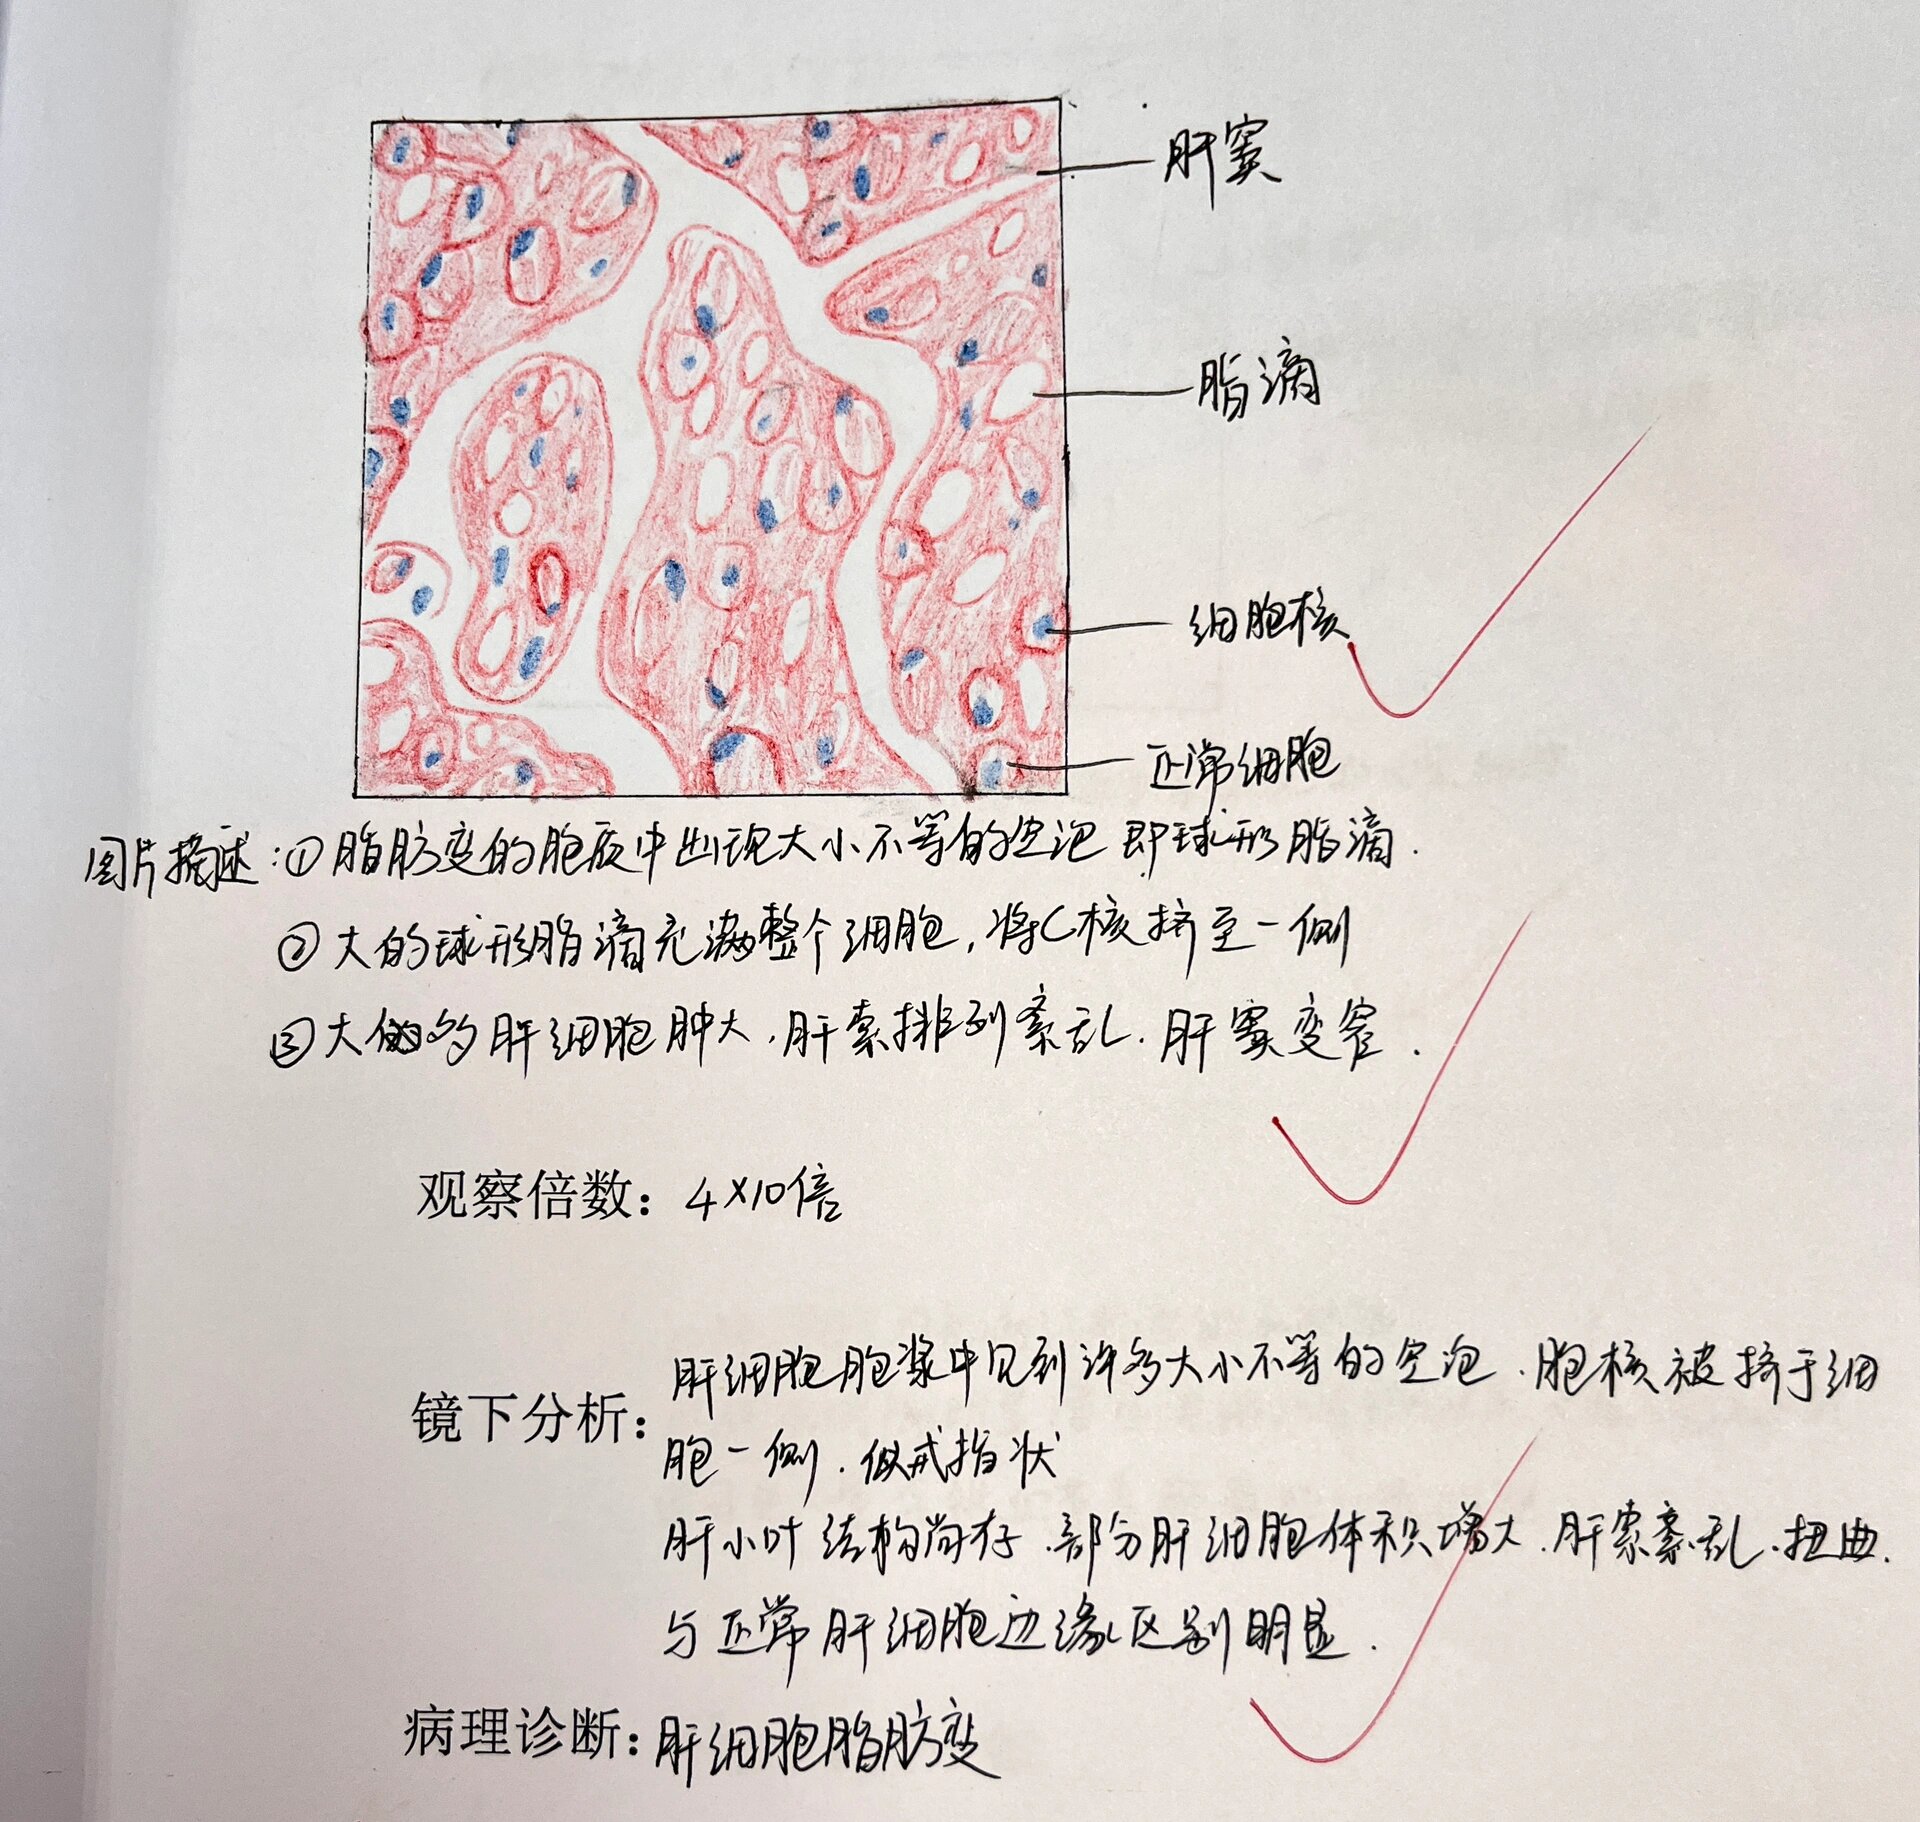 肝窦
脂滴
细胞核
正常细胞
图片描述:①脂肪变的胞质中出现大小不等的空泡 即球形脂滴.
②大的球形脂滴充满整个细胞,将C核挤至一侧
③大的肝细胞肿大,肝索排列紊乱.肝窦变窄.
观察倍数:4×10倍
镜下分析:肝细胞胞浆中见到许多大小不等的空泡.胞核被挤于细
胞一侧.似戒指状
肝小叶结构尚存.部分肝细胞体积增大.肝索紊乱.扭曲.
与正常肝细胞边缘区别明显.
病理诊断:肝细胞脂肪变